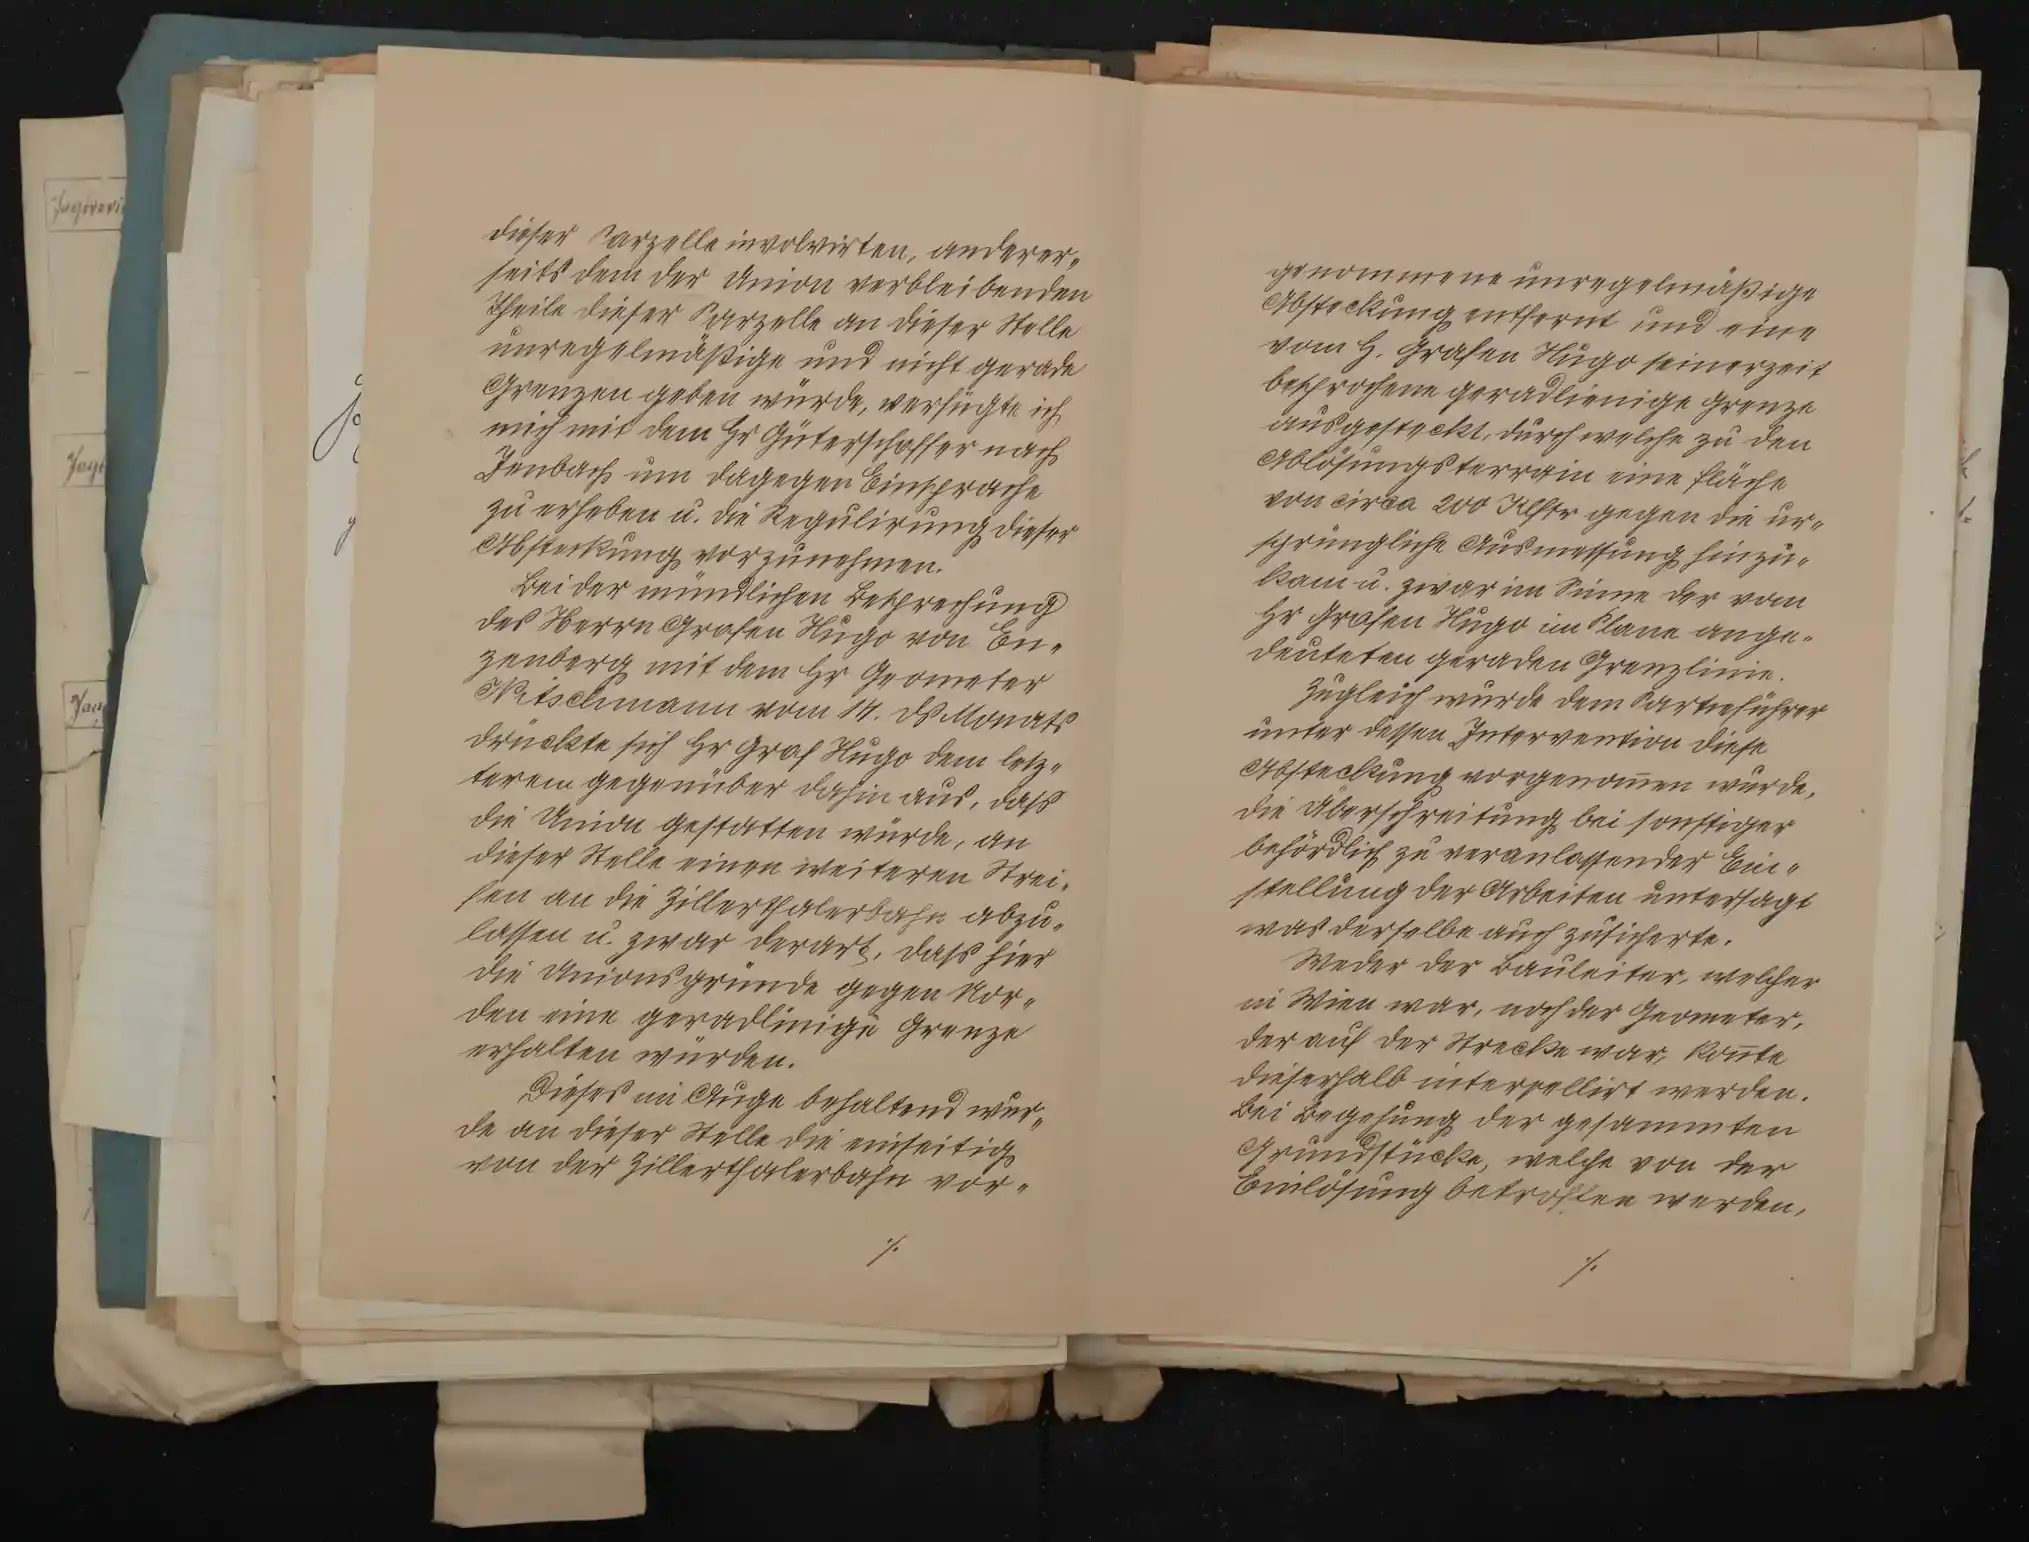 dieser Parzelle involvirten, anderer„
seits dem der Union verbleibenden
Theile dieser Parzelle an dieser Stelle
unregelmäßige und nicht gerade
Grenzen geben würde, verfügte ich
mich mit dem Hr Güterschaffer nach
Jenbach um dagegen Einsprache
zu erheben u. die Regulirung dieser
Absteckung vorzunehmen.
Bei der mündlichen Besprechung
des Herrn Grafen Hugo von En„
zenberg mit dem Hr Geometer
Nitschmann vom 14. ds Monats
drückte sich Hr Graf Hugo dem letz„
terem gegenüber dahin aus, daß
die Union gestatten würde, an
dieser Stelle einen weiteren Strei„
fen an die Zillerthalerbahn abzu„
lassen u. zwar derart, daß hier
die Unionsgründe gegen Nor„
den eine geradlinige Grenze
erhalten würden.
Dieses im Auge behaltend wur„
de an dieser Stelle die einseitig
von der Zillerthalerbahn vor„
./.
genommene unregelmäßige
Absteckung entfernt und eine
vom H. Grafen Hugo seinerzeit
besprochene geradlienige Grenze
ausgesteckt, durch welche zu den
Ablösungsterrain eine Fläche
von circa 200 gegen die ur„
sprüngliche Ausmessung hinzu„
kam u. zwar im Sinne der vom
Hr Grafen Hugo im Plane ange„
deuteten geraden Grenzlinie.
Zugleich wurde dem Partieführer
unter dessen Intervention diese
Absteckung vorgenom̄en wurde,
die Überschreitung bei sonstiger
behördlich zu veranlassender Ein„
stellung der Arbeiten untersagt
was derselbe auch zusicherte.
Weder der Bauleiter, welcher
in Wien war, noch der Geometer,
der auf der Strecke war, kon̄te
dieserhalb interpellirt werden.
Bei Begehung der gesammten
Grundstücke, welche von der
Einlösung betroffen werden,
./.